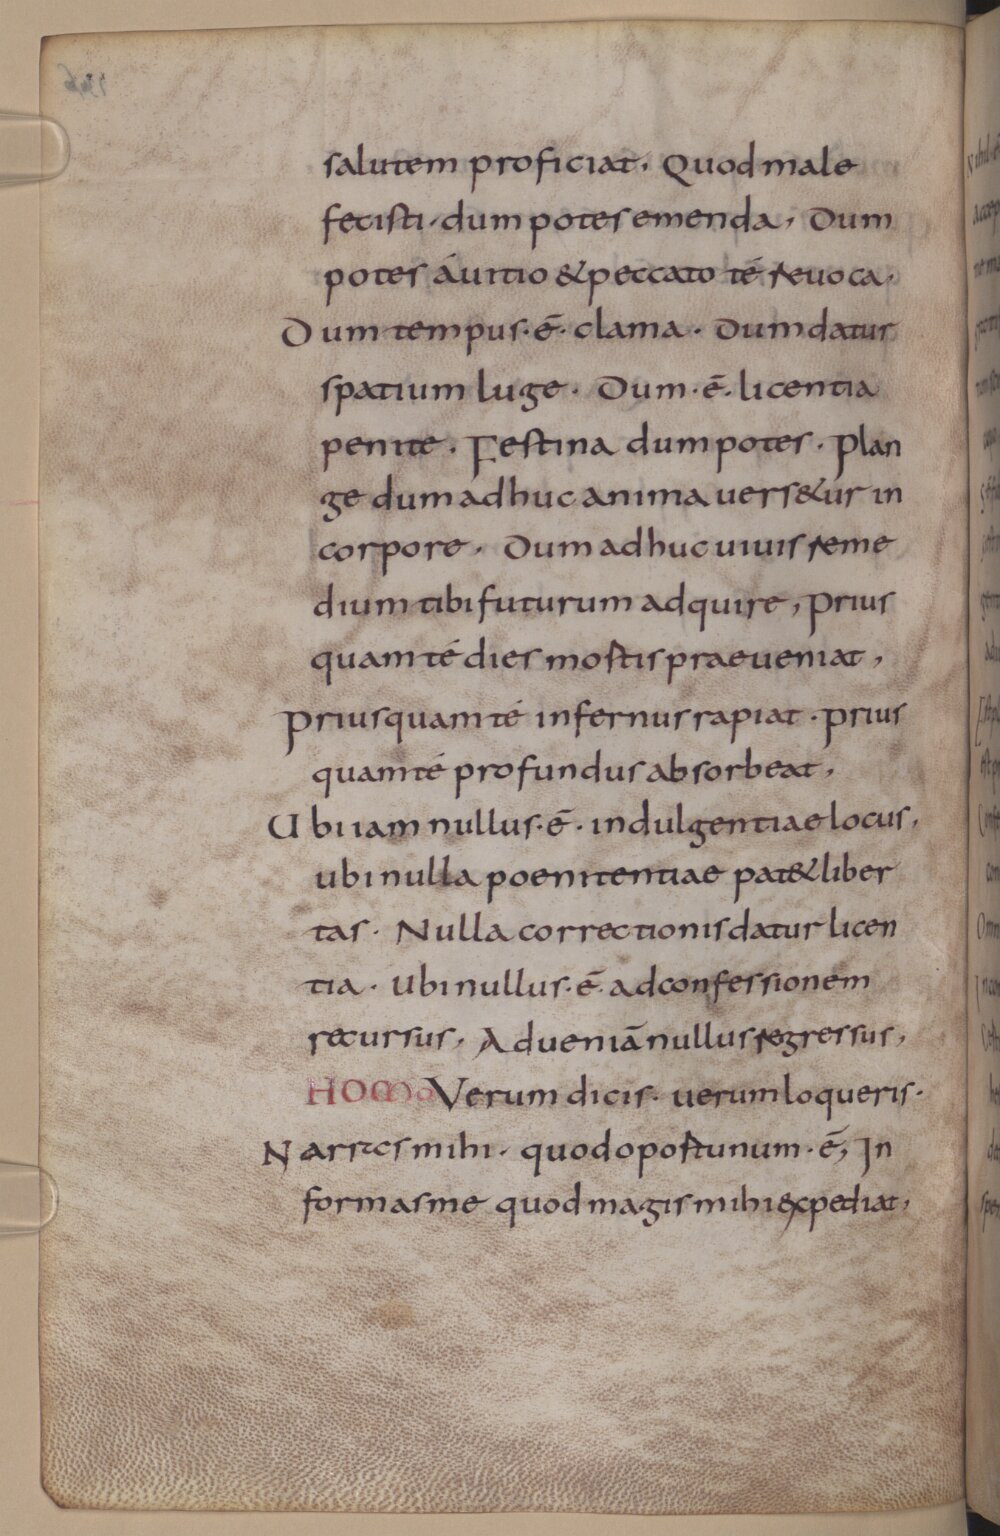 salutem proficiat, Quod male
fecisti, dum potes emenda, Dum
potes áuitio & peccato té reuoca,
Dum tempus·ē· clama · Dum datur
spatium luge · Dum·ē·licentia
penite · Festina dum potes · Plan
ge dum adhuc anima uers&ur in
corpore, Dum adhuc uiuis reme
dium tibi futurum adquire, prius
quam té dies mortis praeueniat,
Prius quam té infernus rapiat · prius
quam té profundus absorbeat,
Ubi iam nullus·ē· indulgentiae locus,
ubi nulla poenitentiae pat& liber
tas · Nulla correctionis datur licen
tia · Ubi nullus·ē· ad confessionem
recursus, Ad ueniā nullus regressus,
HOMO Verum dicis · uerum loqueris ·
Narras mihi · quod oportunum·ē, In
formas me quod magis mihi expediat,